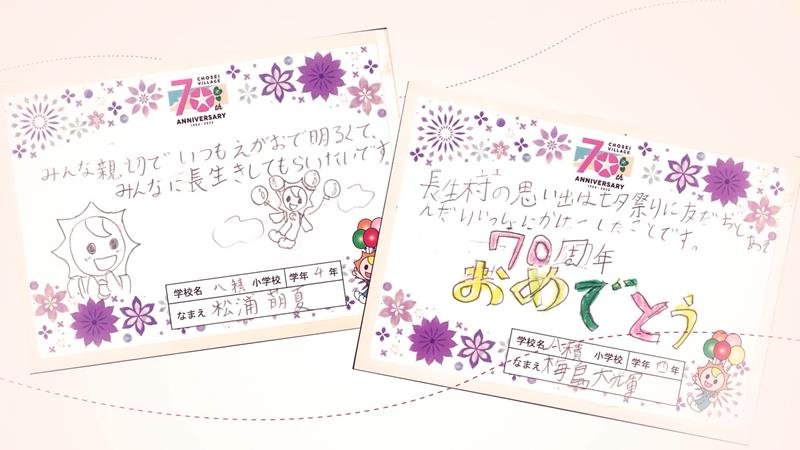 CHOSEI
VILLAGE
70th
ANNIVERSARY
1953 - 2023
みんな親切でいつもえがおで明るくて、
みんなに長生きしてもらいたいです。
学校名 八積 小学校 学年 4 年
なまえ 松浦 萌夏
CHOSEI
VILLAGE
70th
ANNIVERSARY
1953 - 2023
長生村の思い出は七夕祭りに友だちと
んだりいっしょに
したことです。
70周年
おめでとう
学校名 八積 小学校 学年 年
なまえ 梅島